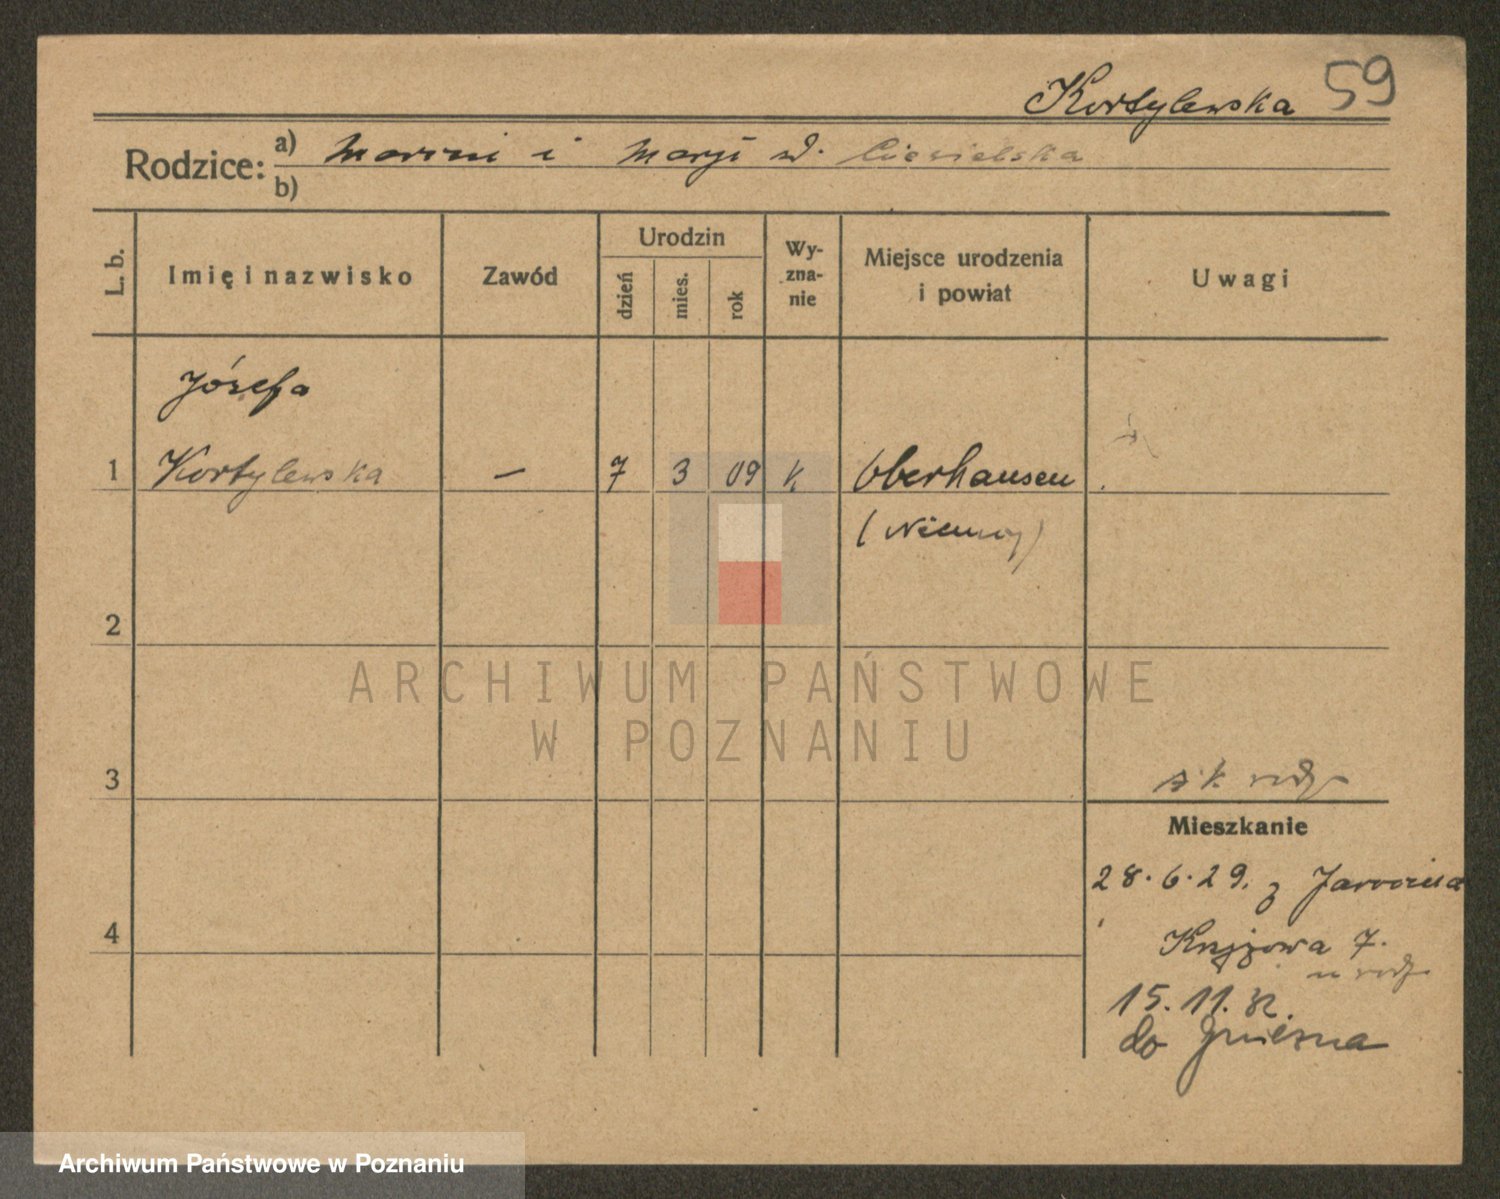 Kortylewska 59
Rodzice: a) Marcin i Marji d. Ciesielska
b)
L. b.
Imię i nazwisko
Zawód
Urodzin
dzień
mies.
rok
Wy-
zna-
nie
Miejsce urodzenia
i powiat
Uwagi
Józefa
1 Kortylewska – 7 3 09 k Oberhausen
(Niemcy)
2
3
Mieszkanie
28.6.29. z Jarocina
4
Krzyżowa 7.
u rodz.
15.11.32.
do Gniezna
ARCHIWUM PAŃSTWOWE
W POZNANIU
Archiwum Państwowe w Poznaniu